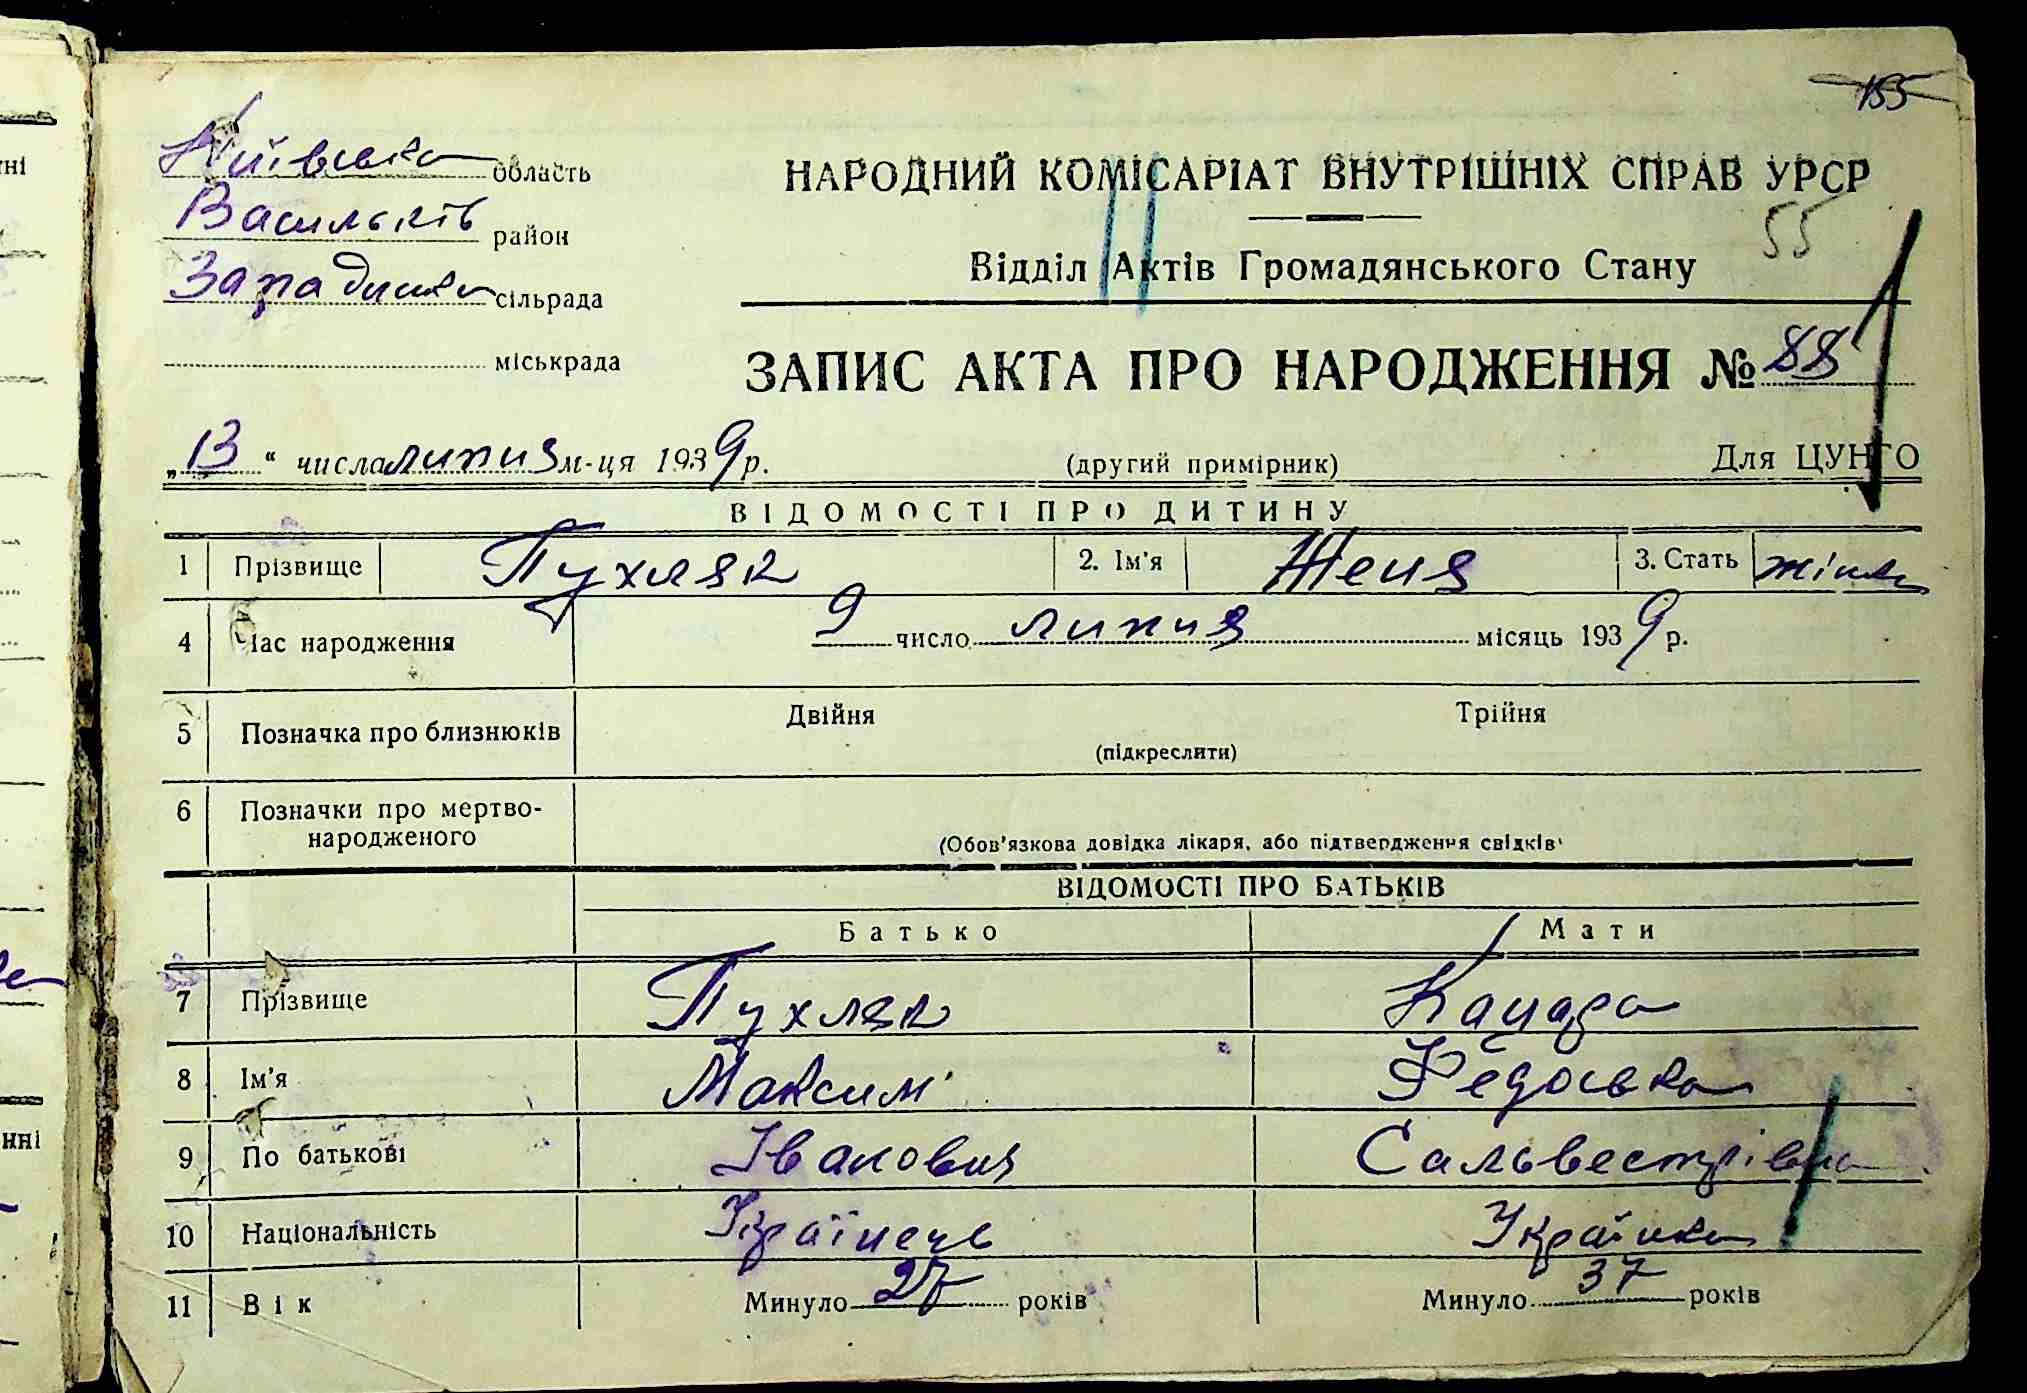 155
Київська область
Васильків район
Западинка сільрада
міськрада
НАРОДНИЙ КОМІСАРІАТ ВНУТРІШНІХ СПРАВ УРСР
55
Відділ Актів Громадянського Стану
ЗАПИС АКТА ПРО НАРОДЖЕННЯ № 88
„13“ числа липня м-ця 1939 р.
(другий примірник)
Для ЦУНГО
ВІДОМОСТІ ПРО ДИТИНУ
1 Прізвище Пухляк 2. Ім'я Женя 3. Стать жіноч
4 Час народження 9 число липня місяць 1939 р.
5 Позначка про близнюків Двійня Трійня
(підкреслити)
6 Позначки про мертво-
народженого
(Обов'язкова довідка лікаря, або підтвердження свідків)
ВІДОМОСТІ ПРО БАТЬКІВ
Батько Мати
7 Прізвище Пухляк
8 Ім'я Максим Федоська
9 По батькові Іванович Сальвестрівна
10 Національність Українець Українка
11 Вік Минуло 27 років Минуло 37 років